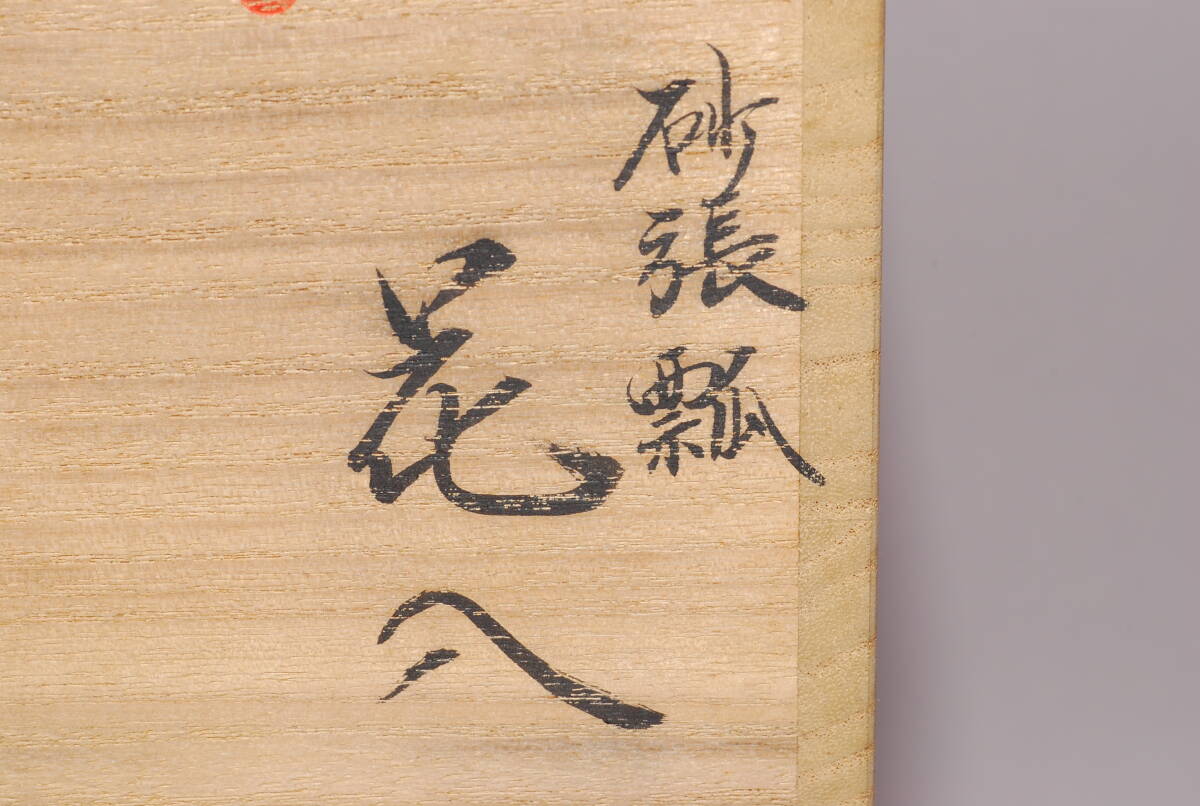 砂張瓢
花入